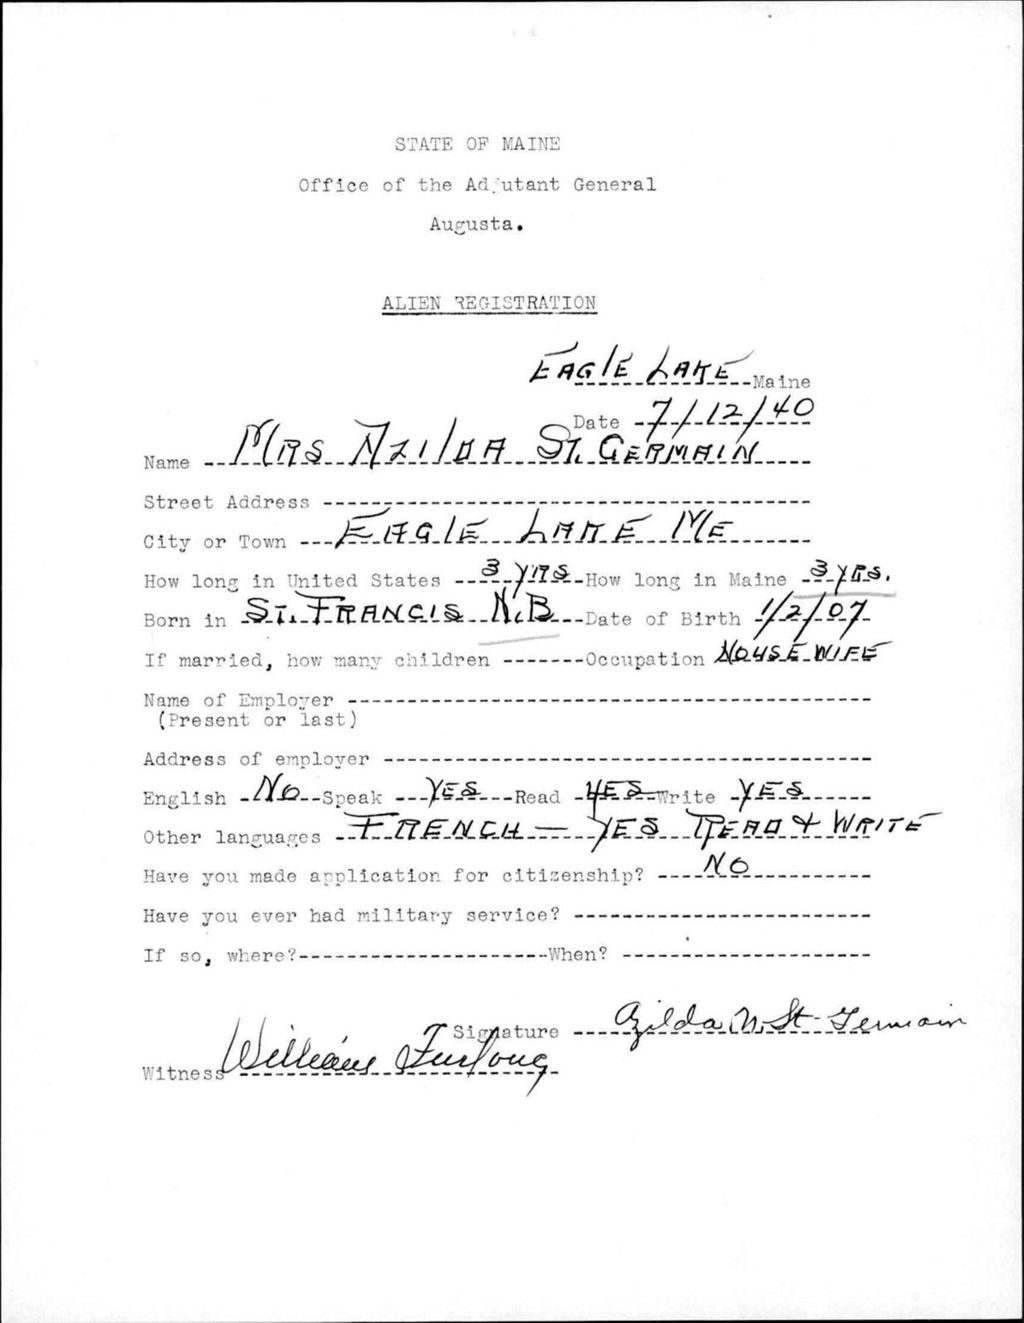 STATE OF MAINE
Office of the Adjutant General
Augusta.
ALIEN REGISTRATION
EAGLE LAKE Maine
Date 7/12/40
Name MRS AZILDA ST. GERMAIN
Street Address
City or Town EAGLE LAKE ME
How long in United States 3 YRS How long in Maine 3 YRS.
Born in ST. FRANCIS N.B Date of Birth 1/2/07
If married, how many children Occupation HOUSEWIFE
Name of Employer
(Present or last)
Address of employer
English No Speak YES Read YES Write YES
Other languages FRENCH — YES READ & WRITE
Have you made application for citizenship? NO
Have you ever had military service?
If so, where? When?
Signature Azilda N. St-Germain
Witness William Furlong